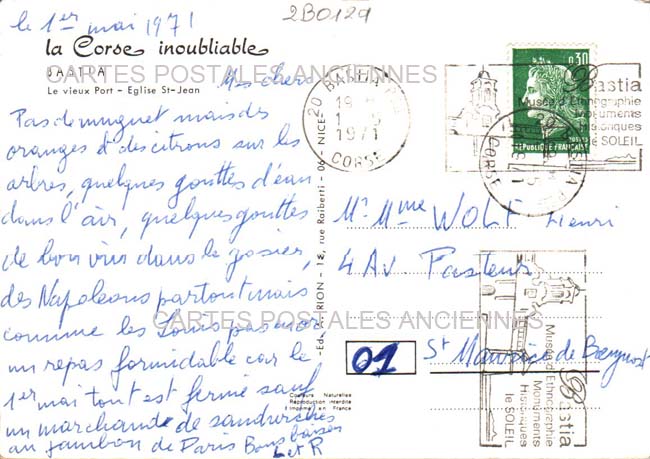 le 1er mai 1971
2B0129
la Corse inoubliable
BASTIA
Le vieux Port - Eglise St-Jean
CARTES POSTALES ANCIENNES
Mes chers
Pas de muguet mais des
oranges et des citrons sur les
arbres, quelques gouttes d'eau
dans l'air, quelques gouttes
de bon vin dans le gosier,
des Napoléons partout mais
comme les Louis pas mor
un repas formidable car le
1er mai tout est fermé sauf
un marchand de sandwiches
au jambon de Paris Bons baisers
L et R
20 BASTIA
19
1 - 5
1971
CORSE
0,30
REPUBLIQUE FRANÇAISE
Bastia
Musée d'Ethnographie
Monuments
Historiques
le SOLEIL
CORSE
Mr Mme WOLF Henri
4 Av. Pasteur
01
St Maurice de Beynost
CARTES POSTALES ANCIENNES
18, rue Raiberti - 06 - NICE
Couleurs Naturelles
Reproduction interdite
Imprimé en France
Bastia
Musée d'Ethnographie
Monuments
Historiques
le SOLEIL